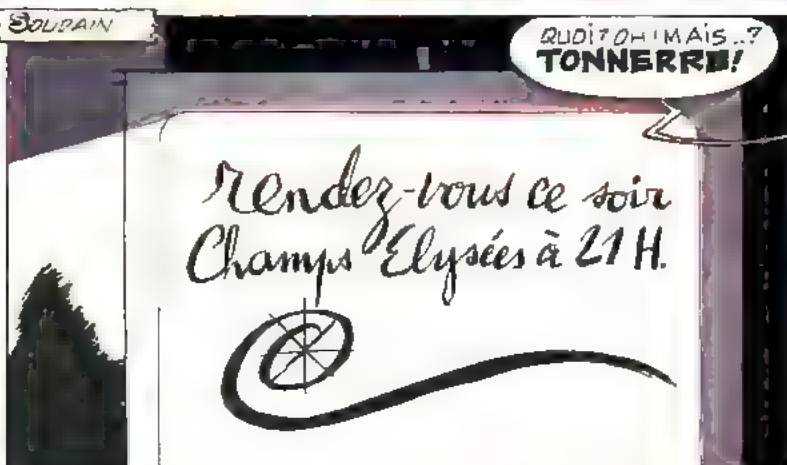 SOUDAIN
QUOI? OH! MAIS..?
TONNERRE!
rendez-vous ce soir
Champs Elysées à 21 H.